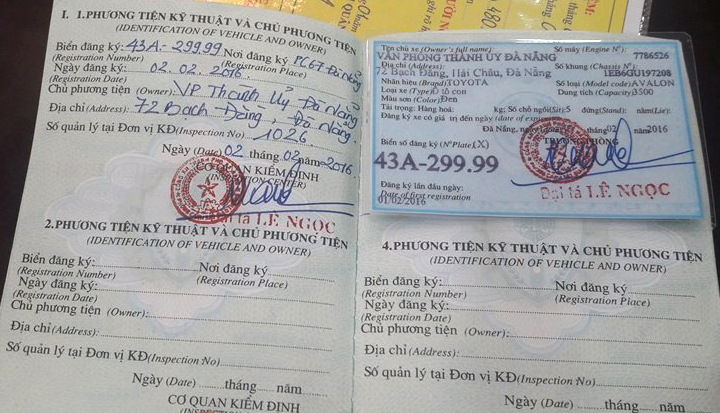 I. 1.PHƯƠNG TIỆN KỸ THUẬT VÀ CHỦ PHƯƠNG TIỆN
(IDENTIFICATION OF VEHICLE AND OWNER)
Biển đăng ký: 43A-299.99 Nơi đăng ký PC67 Đà Nẵng
(Registration Number) (Registration Place)
Ngày đăng ký: 02.02.2016
(Registration Date)
Chủ phương tiện (Owner): VP Thành Ủy Đà Nẵng
Địa chỉ(Address): 72 Bạch Đằng, Đà Nẵng
Số quản lý tại Đơn vị KĐ(Inspection No) 1026
Ngày (Date) 02 tháng 02 năm 2016
CƠ QUAN KIỂM ĐỊNH
(INSPECTION CENTER)
Đại tá LÊ NGỌC
2.PHƯƠNG TIỆN KỸ THUẬT VÀ CHỦ PHƯƠNG TIỆN
(IDENTIFICATION OF VEHICLE AND OWNER)
Biển đăng ký: Nơi đăng ký
(Registration Number) (Registration Place)
Ngày đăng ký:
(Registration Date)
Chủ phương tiện (Owner):
Địa chỉ(Address):
Số quản lý tại Đơn vị KĐ(Inspection No)
Ngày (Date) tháng năm
CƠ QUAN KIỂM ĐỊNH
Tên chủ xe (Owner's full name): Số máy (Engine Nº):
VĂN PHÒNG THÀNH ỦY ĐÀ NẴNG 7786526
Địa chỉ (Address): Số khung (Chassis Nº):
72 Bạch Đằng, Hải Châu, Đà Nẵng 1EB6GU197208
Nhãn hiệu (Brand) TOYOTA Số loại (Model code) AVALON
Loại xe (Type) Ô tô con Dung tích (Capacity) 3500
Màu sơn (Color) Đen
Tải trọng: Hàng hoá: kg; Số chỗ ngồi(Sit): 5 đứng(Stand): nằm(Lie):
Đăng ký xe có giá trị đến ngày (date of
Đà Nẵng, 02 năm 2016
Biển số đăng ký (NºPlate)(X) TRƯỞNG PHÒNG
43A-299.99
Đại tá LÊ NGỌC
Đăng ký lần đầu ngày:
Date of first registration
01/02/2016
4.PHƯƠNG TIỆN KỸ THUẬT VÀ CHỦ PHƯƠNG TIỆN
(IDENTIFICATION OF VEHICLE AND OWNER)
Biển đăng ký: Nơi đăng ký
(Registration Number) (Registration Place)
Ngày đăng ký:
(Registration Date)
Chủ phương tiện (Owner):
Địa chỉ(Address):
Số quản lý tại Đơn vị KĐ(Inspection No)
Ngày (Date) tháng năm